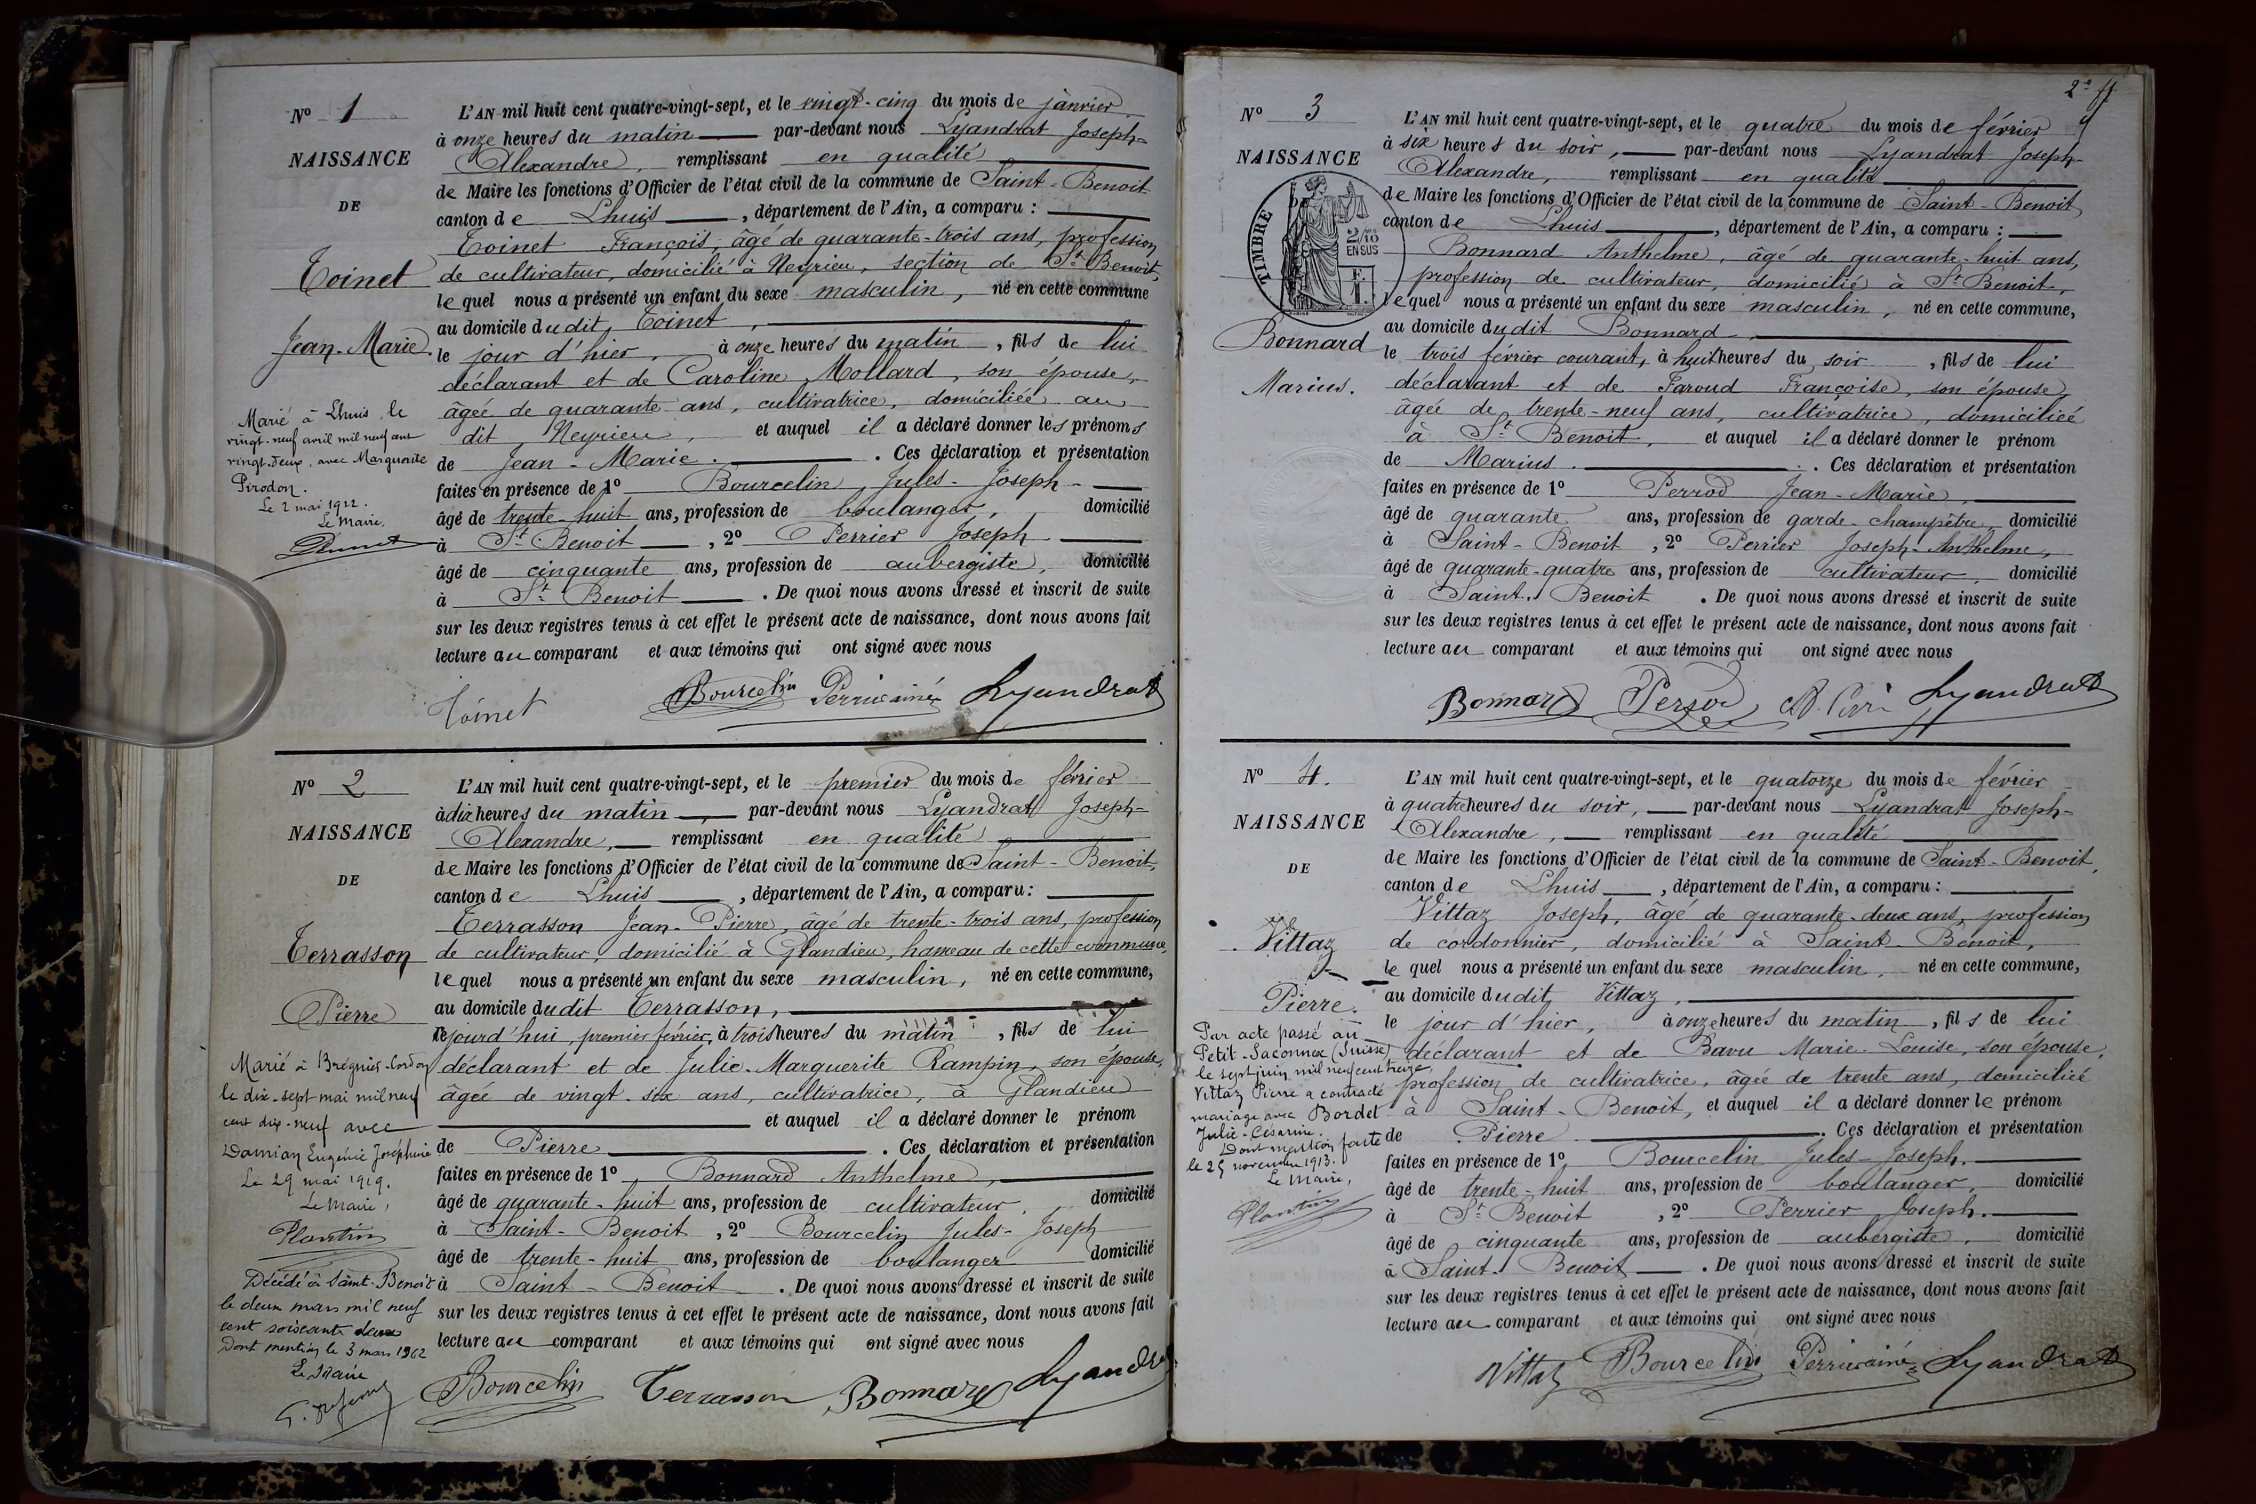 Nº 1
NAISSANCE
DE
Toinet
Jean-Marie.
Marié à Lhuis le
vingt-neuf avril mil neuf cent
vingt-deux, avec Marguerite
Pirodon.
Le 2 mai 1922.
Le Maire,
L'AN mil huit cent quatre-vingt-sept, et le vingt-cinq du mois de janvier
à onze heures du matin par-devant nous Lyandrat Joseph-
Alexandre, remplissant en qualité
de Maire les fonctions d'Officier de l'état civil de la commune de Saint-Benoit
canton de Lhuis, département de l'Ain, a comparu :
Toinet François, âgé de quarante-trois ans, profession
de cultivateur, domicilié à Neyrieu, section de St Benoit,
lequel nous a présenté un enfant du sexe masculin, né en cette commune
au domicile dudit Toinet,
le jour d'hier, à onze heures du matin, fils de lui
déclarant et de Caroline Mollard, son épouse,
âgée de quarante ans, cultivatrice, domiciliée au
dit Neyrieu, et auquel il a déclaré donner les prénoms
de Jean-Marie. . Ces déclaration et présentation
faites en présence de 1º Bourcelin Jules-Joseph
âgé de trente-huit ans, profession de boulanger, domicilié
à St Benoit, 2º Perrier Joseph
âgé de cinquante ans, profession de aubergiste, domicilié
à St Benoit . De quoi nous avons dressé et inscrit de suite
sur les deux registres tenus à cet effet le présent acte de naissance, dont nous avons fait
lecture au comparant et aux témoins qui ont signé avec nous
Toinet Bourcelin Perrier ainé Lyandrat
Nº 2
NAISSANCE
DE
Terrasson
Pierre
Marié à Brégnier-Cordon
le dix-sept mai mil neuf
cent dix-neuf avec
Damian Eugénie Joséphine
Le 29 mai 1919.
Le Maire,
Plantin
Décédé à Saint-Benoit
le deux mars mil neuf
cent soixante deux
Dont mention le 3 mars 1962
Le Maire
L'AN mil huit cent quatre-vingt-sept, et le premier du mois de février
à dix heures du matin, par-devant nous Lyandrat Joseph-
Alexandre, remplissant en qualité
de Maire les fonctions d'Officier de l'état civil de la commune de Saint-Benoit,
canton de Lhuis, département de l'Ain, a comparu :
Terrasson Jean-Pierre, âgé de trente-trois ans, profession
de cultivateur, domicilié à Glandieu, hameau de cette commune,
lequel nous a présenté un enfant du sexe masculin, né en cette commune,
au domicile dudit Terrasson,
cejourd'hui, premier février, à trois heures du matin, fils de lui
déclarant et de Julie-Marguerite Rampin, son épouse,
âgée de vingt-six ans, cultivatrice, à Glandieu
et auquel il a déclaré donner le prénom
de Pierre . Ces déclaration et présentation
faites en présence de 1º Bonnard Anthelme,
âgé de quarante-huit ans, profession de cultivateur, domicilié
à Saint-Benoit, 2º Bourcelin Jules-Joseph
âgé de trente-huit ans, profession de boulanger domicilié
à Saint-Benoit . De quoi nous avons dressé et inscrit de suite
sur les deux registres tenus à cet effet le présent acte de naissance, dont nous avons fait
lecture au comparant et aux témoins qui ont signé avec nous
Bourcelin Terrasson Bonnard Lyandrat
2e ff
Nº 3
NAISSANCE
TIMBRE
2/10
EN SUS
Bonnard
Marius.
L'AN mil huit cent quatre-vingt-sept, et le quatre du mois de février
à six heures du soir, par-devant nous Lyandrat Joseph-
Alexandre, remplissant en qualité
de Maire les fonctions d'Officier de l'état civil de la commune de Saint-Benoit
canton de Lhuis, département de l'Ain, a comparu :
Bonnard Anthelme, âgé de quarante-huit ans,
profession de cultivateur, domicilié à St Benoit,
lequel nous a présenté un enfant du sexe masculin, né en cette commune,
au domicile dudit Bonnard,
le trois février courant, à huit heures du soir, fils de lui
déclarant et de Faroud Françoise, son épouse,
âgée de trente-neuf ans, cultivatrice, domiciliée
à St Benoit, et auquel il a déclaré donner le prénom
de Marius. . Ces déclaration et présentation
faites en présence de 1º Perrod Jean-Marie,
âgé de quarante ans, profession de garde-champêtre, domicilié
à Saint-Benoit, 2º Perrier Joseph-Anthelme,
âgé de quarante-quatre ans, profession de cultivateur, domicilié
à Saint-Benoit . De quoi nous avons dressé et inscrit de suite
sur les deux registres tenus à cet effet le présent acte de naissance, dont nous avons fait
lecture au comparant et aux témoins qui ont signé avec nous
Bonnard Perrod Lyandrat
Nº 4.
NAISSANCE
DE
Vittaz
Pierre.
Par acte passé au
Petit-Saconnex (Suisse)
le sept juin mil neuf cent treize,
Vittaz Pierre a contracté
mariage avec Bordet
Julie-Césarine.
Dont mention faite
le 25 novembre 1913.
Le Maire,
Plantin
L'AN mil huit cent quatre-vingt-sept, et le quatorze du mois de février
à quatre heures du soir, par-devant nous Lyandrat Joseph-
Alexandre, remplissant en qualité
de Maire les fonctions d'Officier de l'état civil de la commune de Saint-Benoit,
canton de Lhuis, département de l'Ain, a comparu :
Vittaz Joseph, âgé de quarante-deux ans, profession
de cordonnier, domicilié à Saint-Benoit,
lequel nous a présenté un enfant du sexe masculin, né en cette commune,
au domicile dudit Vittaz,
le jour d'hier, à onze heures du matin, fils de lui
déclarant et de Bavu Marie-Louise, son épouse,
profession de cultivatrice, âgée de trente ans, domiciliée
à Saint-Benoit, et auquel il a déclaré donner le prénom
de Pierre . Ces déclaration et présentation
faites en présence de 1º Bourcelin Jules-Joseph.
âgé de trente-huit ans, profession de boulanger, domicilié
à St Benoit, 2º Perrier Joseph.
âgé de cinquante ans, profession de aubergiste, domicilié
à Saint-Benoit . De quoi nous avons dressé et inscrit de suite
sur les deux registres tenus à cet effet le présent acte de naissance, dont nous avons fait
lecture au comparant et aux témoins qui ont signé avec nous
Vittaz Bourcelin Perrier ainé Lyandrat